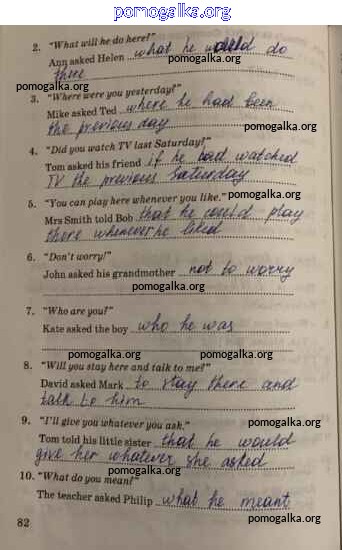 pomogalka.org
2. "What will he do here?"
Ann asked Helen what he would do
there
pomogalka.org
pomogalka.org
3. "Where were you yesterday?"
Mike asked Ted where he had been
the previous day
pomogalka.org
4. "Did you watch TV last Saturday?"
Tom asked his friend if he had watched
TV the previous Saturday
pomogalka.org
pomogalka.org
5. "You can play here whenever you like."
Mrs Smith told Bob that he could play
there whenever he liked
pomogalka.org
6. "Don't worry!"
pomogalka.org
John asked his grandmother not to worry
pomogalka.org
7. "Who are you?"
pomogalka.org
Kate asked the boy who he was
pomogalka.org
pomogalka.org
8. "Will you stay here and talk to me?"
David asked Mark to stay there and
talk to him
pomogalka.org
9. "I'll give you whatever you ask."
pomogalka.org
Tom told his little sister that he would
give her whatever she asked
pomogalka.org
10. "What do you mean?"
The teacher asked Philip what he meant
82
pomogalka.org